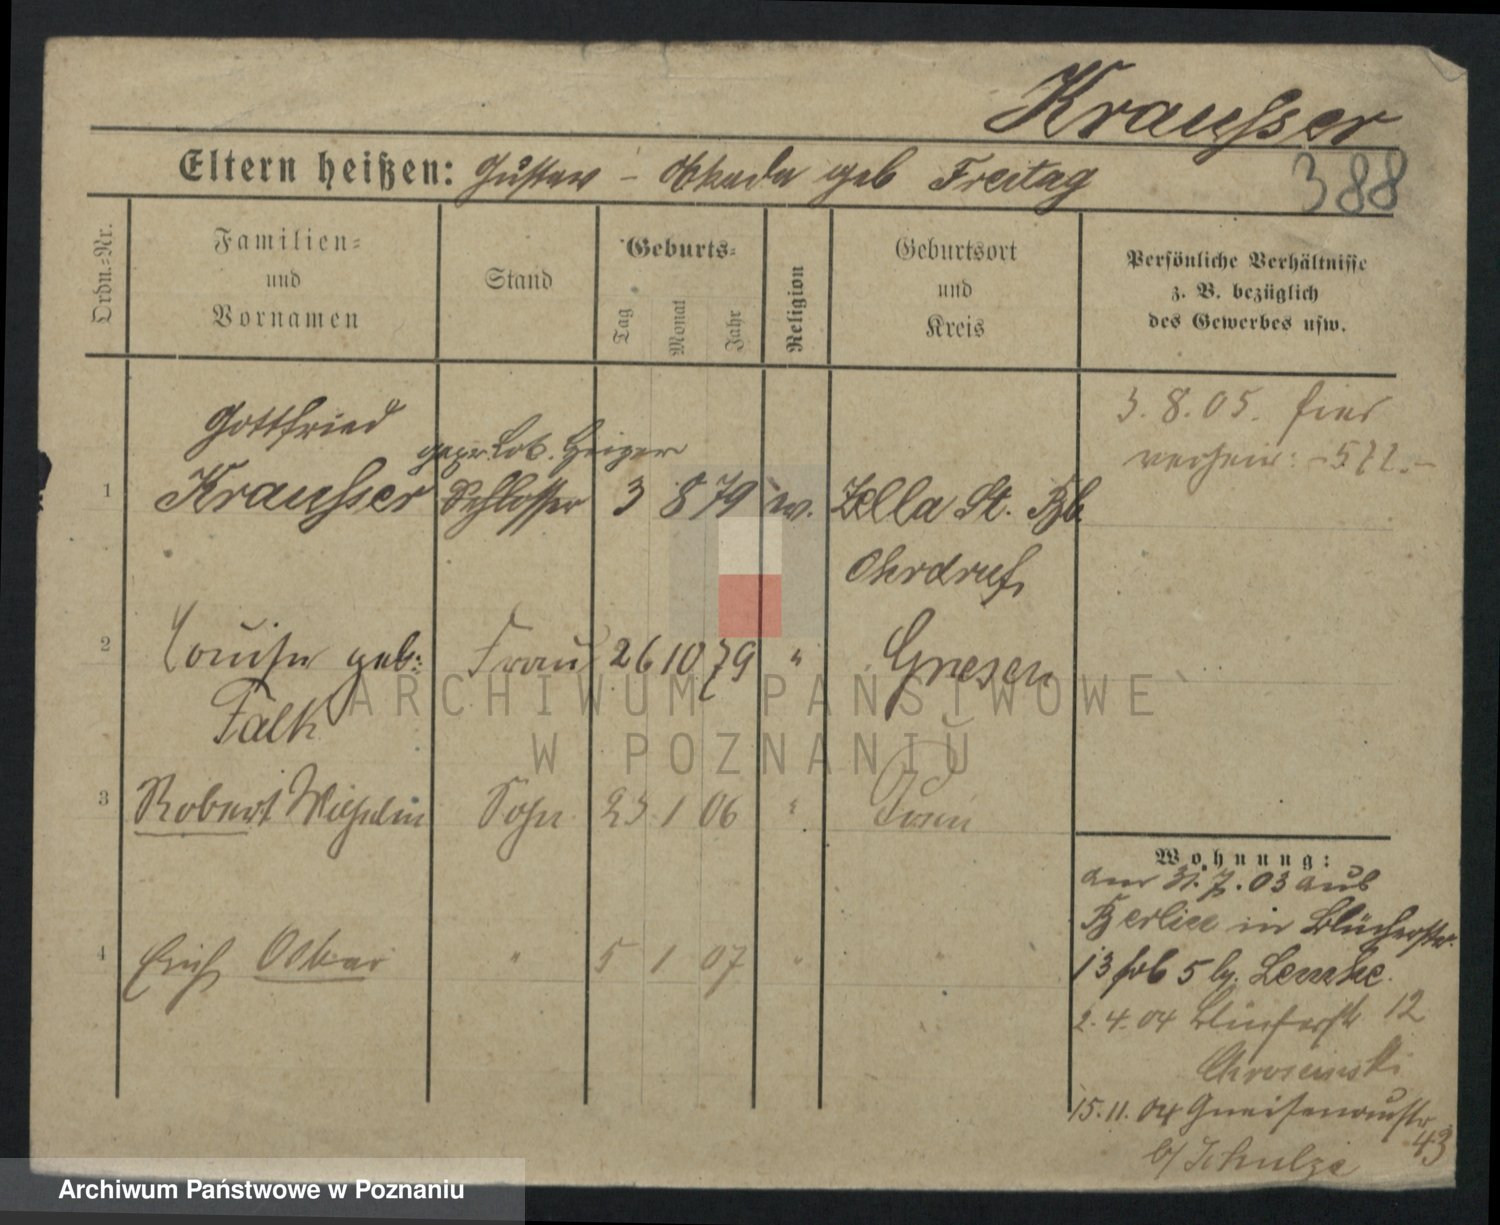 Kraußer
Eltern heißen: Gustav – geb Freitag
388
Ordn.=Nr.
Familien=
und
Vornamen
Stand
Geburts=
Tag
Monat
Jahr
Religion
Geburtsort
und
Kreis
Persönliche Verhältnisse
z. B. bezüglich
des Gewerbes usw.
3. 8. 05. hier
verheir: –522.–
Gottfried
gepr. Lok. Heizer
1 Kraußer Schlosser 3 8 79 ev. Zella St. Bl.
Ohrdruf
2 Louise geb: Frau 26 10 79 " Gnesen
Falk
3 Robert Wilhelm Sohn 23 1 06 " Posen
4 Erich Oskar " 5 1 07 " "
Wohnung:
am 31. 7. 03 aus
Berlin in Blücherstr.
13 5 Lemke.
2. 4. 04 Blücherstr 12
15. 11. 04 Gneisenaustr
43
b/ Schulze
ARCHIWUM PAŃSTWOWE
W POZNANIU
Archiwum Państwowe w Poznaniu